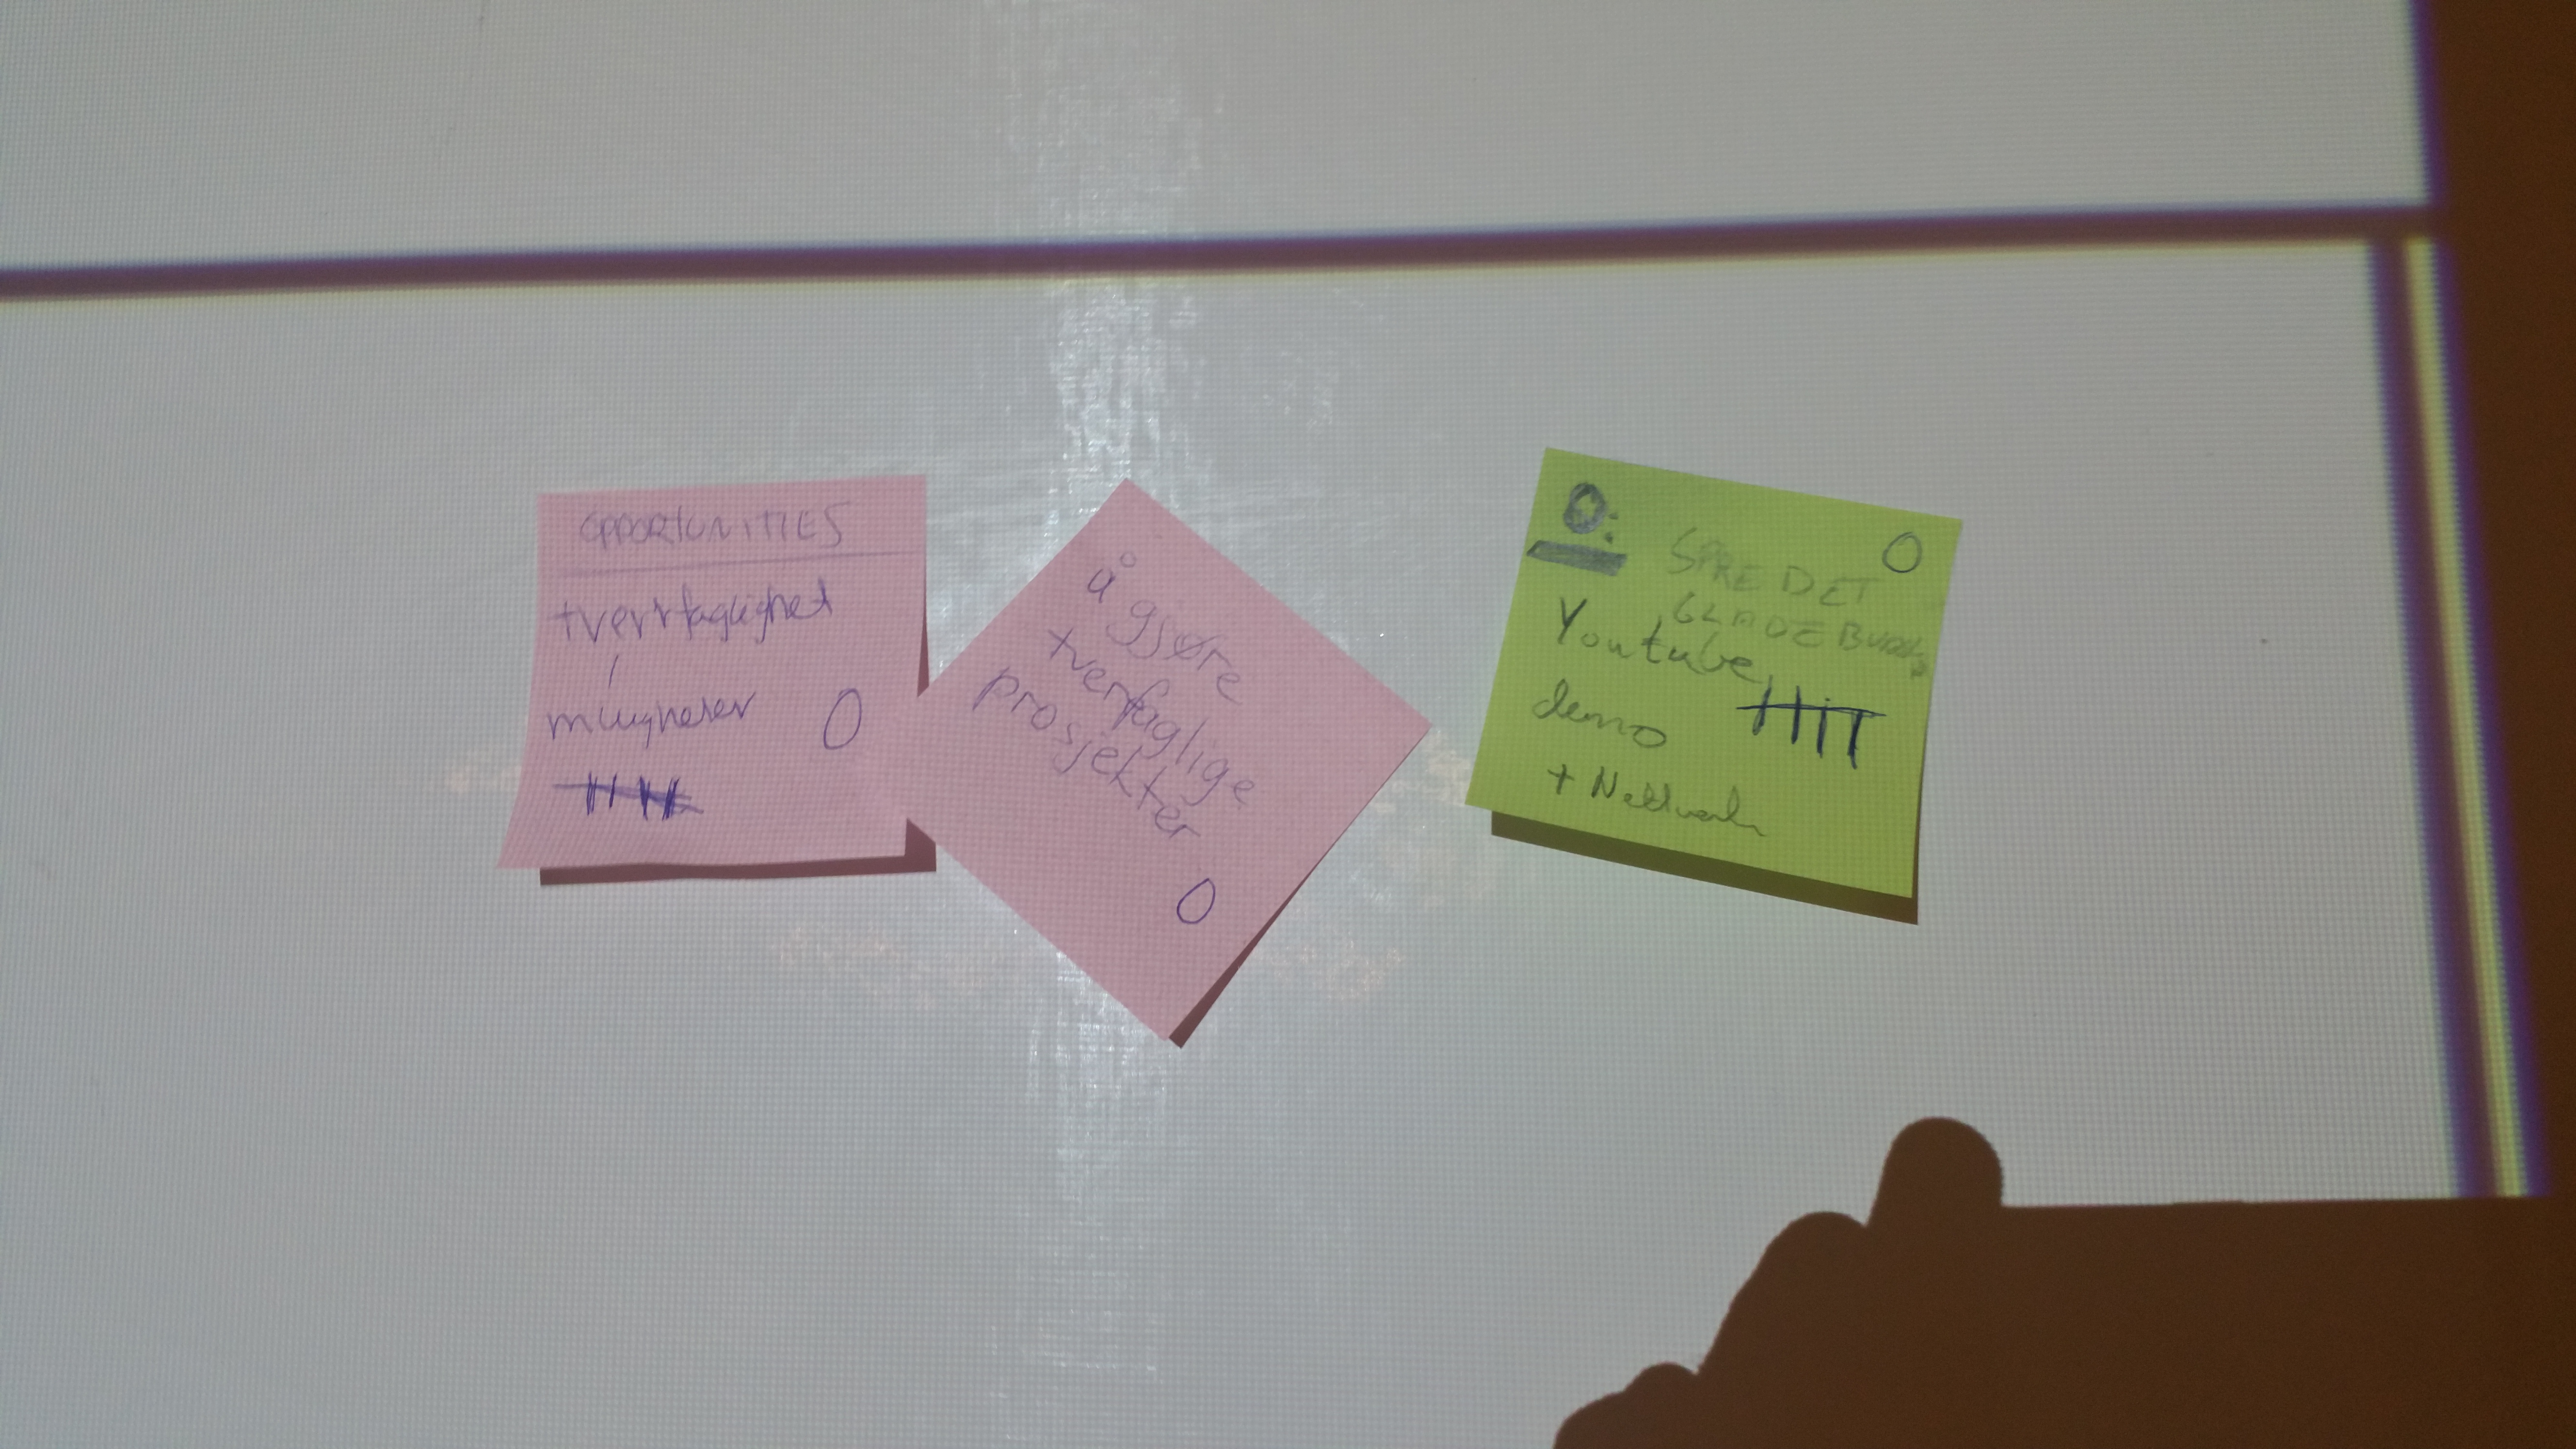 OPPORTUNITIES
tverrfaglighet
0
å gjøre
tverfaglige
prosjekter
0
O: 0
SPRE DET
GLADE
Youtube
demo
+ Nettverk